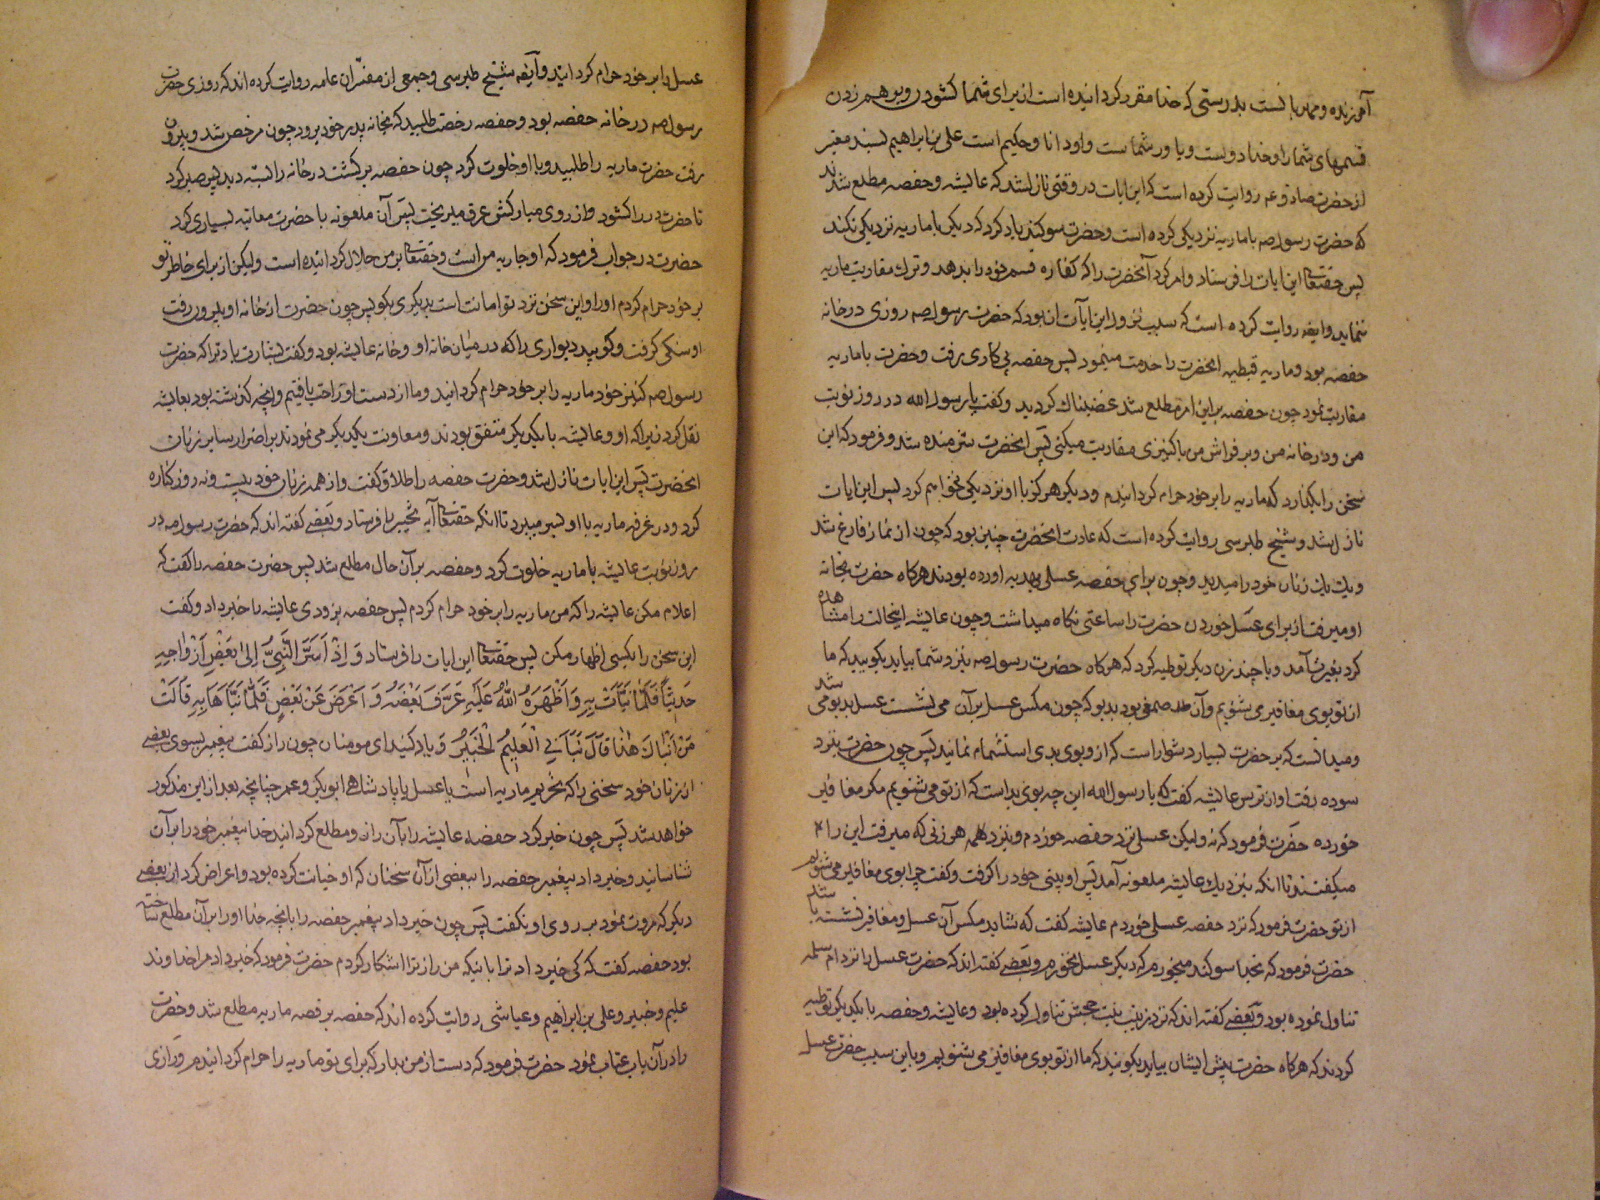 آمرزنده و مهربانست بدرستی که خدا مقرر کردانیده است از برای شما کشودن و برهم زدن
قسمهای شما را و خدا دوست و یاور شماست و اودانا و حکیم است علی بن ابراهیم بسند معتبر
از حضرت صادق عم روایت کرده است که این ایات در وقتی نازل شد که عایشه و حفصه مطلع شدند
که حضرت رسول صه با ماریه نزدیکی کرده است و حضرت سوکند یاد کرد که دیکر با ماریه نزدیکی نکند
پس حقتعا این ایات را فرستاد و امر کرد آنحضرت را که کفاره قسم خود را بدهد و ترک مقاربت ماریه
ننماید و ایضه روایت کرده است که سبب نزول این آیات ان بود که حضرت رسول صه روزی در خانه
حفصه بود و ماریه قبطیه انحضرت را خدمت مینمود پس حفصه پی کاری رفت و حضرت با ماریه
مقاربت نمود چون حفصه براین امر مطلع شد غضبناک کردید و کفت یا رسول الله در روز نوبت
من و در خانه من و بر فراش من با کنیزی مقاربت میکنی پس انحضرت شرمنده شد و فرمود که این
سخن را بکذار که ماریه را بر خود حرام کردانیدم و دیکر هرکز با او نزدیکی نخواهم کرد پس این ایات
نازل شد و شیخ طبرسی روایت کرده است که عادت انحضرت چنین بود که چون از نماز فارغ شد
و یک یک زنان خود را میدید و چون برای حفصه عسلی بهدیه اورده بودند هرکاه حضرت بخانه
او میرفت از برای عسل خوردن حضرت را ساعتی نکاه میداشت و چون عایشه اینحالت را مشاهده
کرد بغیرت آمد و با چند زن دیکر توطیه کرد که هرکاه حضرت رسول صه بنزد شما بیاید بکویید که ما
از تو بوی مغافیر می شنویم و آن صمغی بود بدبو که چون مکس عسل بر آن می نشست عسل بدبو می شد
و میدانست که بر حضرت بسیار دشوار است که از و بوی بدی استشمام نمایند پس چون حضرت بنزد
سوده رفت او از ترس عایشه کفت که یا رسول الله این چه بوی بد است که از تو می شنویم مکر مغافیر
خورده حضرت فرمود که نه ولیکن عسلی نزد حفصه خوردم و بنزد همه هر زنی که میرفت این را
میکفتند تا انکه بنزدیک عایشه ملعونه آمد پس او بینی خود را کرفت و کفت چرا بوی مغافیر می شنوم
از تو حضرت فرمود که نزد حفصه عسلی خوردم عایشه کفت که شاید مکس آن عسل و مغافر نشسته باشد
حضرت فرمود که بخدا سوکند میخورم که دیکر عسل نخورم و بعضی کفته اند که حضرت عسل را نزد ام سلمه
تناول نموده بود و بعضی کفته اند که نزد زینب بنت جحش تناول کرده بود و عایشه و حفصه با یکدیکر توطیه
کردند که هرکاه حضرت پیش ایشان بیاید بکویند که ما از تو بوی مغافیر می شنویم و باین سبب حضرت عسل
عسل را بر خود حرام کردانید و آیضه شیخ طبرسی و جمعی از مفسران عامه روایت کرده اند که روزی حضرت
رسول صه در خانه حفصه بود و حفصه رخصت طلبید که بخانه پدر خود برود چون مرخص شد و بیرون
رفت حضرت ماریه را طلبید و با او خلوت کرد چون حفصه برکشت در خانه را بسته دید پس صبر کرد
تا حضرت در را کشود و از روی مبارکش عرق میریخت پس آن ملعونه با حضرت معاتبه بسیاری کرد
حضرت در جواب فرمود که او جاریه من است و حقتعا بر من حلال کردانیده است ولیکن از برای خاطر تو
بر خود حرام کردم او را و این سخن نزد تو امانت است بدیکری مکو پس چون حضرت از خانه او بیرون رفت
او سنکی کرفت و کوبید دیواری را که در میان خانه او و خانه عایشه بود و کفت بشارت باد ترا که حضرت
رسول صه کنیز خود ماریه را بر خود حرام کردانید و ما از دست او راحت یافتیم و انچه کذشته بود بعایشه
نقل کرد زیرا که او و عایشه با یکدیکر متفق بودند و معاونت یکدیکر می نمودند بر اضرار سایر زنان
انحضرت پس این ایات نازل شد و حضرت حفصه را طلاق کفت و از همه زنان خود بیست و نه روز کناره
کرد و در غرفه ماریه با او بسر میبرد تا انکه حقتعا آیه تخییر را فرستاد و بعضی کفته اند که حضرت رسول صه در
روز نوبت عایشه با ماریه خلوت کرد و حفصه بر آن حال مطلع شد پس حضرت حفصه را کفت که
اعلام مکن عایشه را که من ماریه را بر خود حرام کردم پس حفصه بزودی عایشه را خبر داد و کفت
این سخن را بکسی اظهار مکن پس حقتعا این ایات را فرستاد وَ اِذْ اَسَرَّ النَّبِیُّ اِلیٰ بَعْضِ اَزْوٰاجِهِ
حَدیثاً فَلَمّٰا نَبَّأَتْ بِهِ وَ اَظْهَرَهُ اللّٰهُ عَلَیْهِ عَرَّفَ بَعْضَهُ وَ اَعْرَضَ عَنْ بَعْضٍ فَلَمّٰا نَبَّاَهٰا بِهِ قٰالَتْ
مَنْ اَنْبَاَکَ هٰذٰا قٰالَ نَبَّاَنِیَ الْعَلیمُ الْخَبیرُ و یاد کنید ای مومنان چون راز کفت پیغمبر بسوی بعضی
از زنان خود سخنی را که تحریم ماریه است یا عسل یا پادشاهی ابوبکر و عمر چنانچه بعد از این مذکور
خواهد شد پس چون خبر کرد حفصه عایشه را بآن راز و مطلع کردانید خدا پیغمبر خود را بر آن
شناسانید و خبر داد پیغمبر حفصه را ببعضی از آن سخنان که او خیانت کرده بود و اعراض کرد از بعضی
دیکر که مروت نمود بر روی او نکفت پس چون خبر داد پیغمبر حفصه را بانچه خدا او را بر آن مطلع ساخته
بود حفصه کفت که کی خبر داد ترا باینکه من راز ترا اشکار کردم حضرت فرمود که خبر داد مرا خداوند
علیم و خبیر و علی بن ابراهیم و عیاشی روایت کرده اند که حفصه بر قصه ماریه مطلع شد و حضرت
را در آن باب عتاب نمود حضرت فرمود که دست از من بدار که برای تو ماریه را حرام کردانیدم و رازی